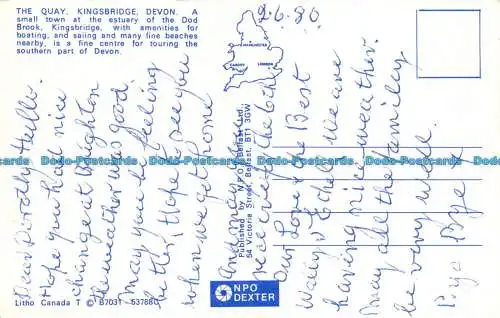 THE QUAY, KINGSBRIDGE, DEVON. A
small town at the estuary of the Dod
Brook, Kingsbridge, with amenities for
boating, and sailing and many fine beaches
nearby, is a fine centre for touring the
southern part of Devon.
2.6.80
MANCHESTER
CARDIFF
LONDON
Dear Hello.
Hope you had nice
change at Brighton
the weather was good.
may you be feeling
better, Hope to see you
when we get home
And may
receive the
Our Love the Best
Wally & Ethel weare
having nice weather.
may all the familey
be very well.
Bye x
Published by N.P.O. Belfast Ltd.,
54 Victoria Street, Belfast, BT1 3GW
Dodo-Postcards Dodo-Postcards Dodo-Postcards Dodo-Postcards
Litho Canada T © B7031 - 53788C
NPO
DEXTER